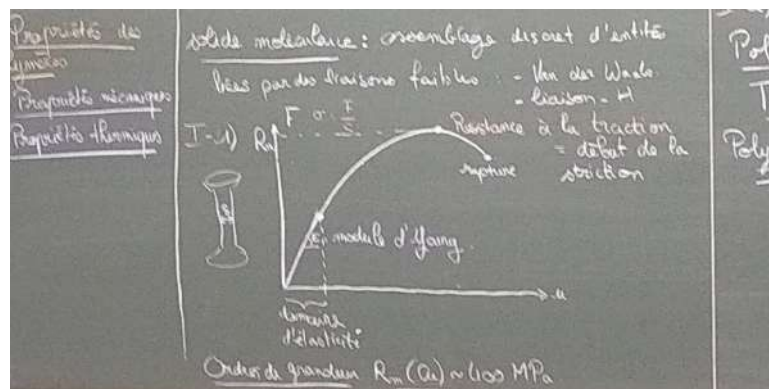 Propriétés des
ymères
Propriétés mécaniques
Propriétés thermiques
solide moléculaire : assemblage discret d'entités
liées par des liaisons faibles : - Van der Waals
- liaison - H
I-1)
Rm
F σ = F/S
Résistance à la traction
= début de la
striction
rupture
S
E, module d'Young.
u
domaine
d'élasticité
Ordres de grandeur Rm (Cu) ~ 400 MPa
Pol
T
Poly